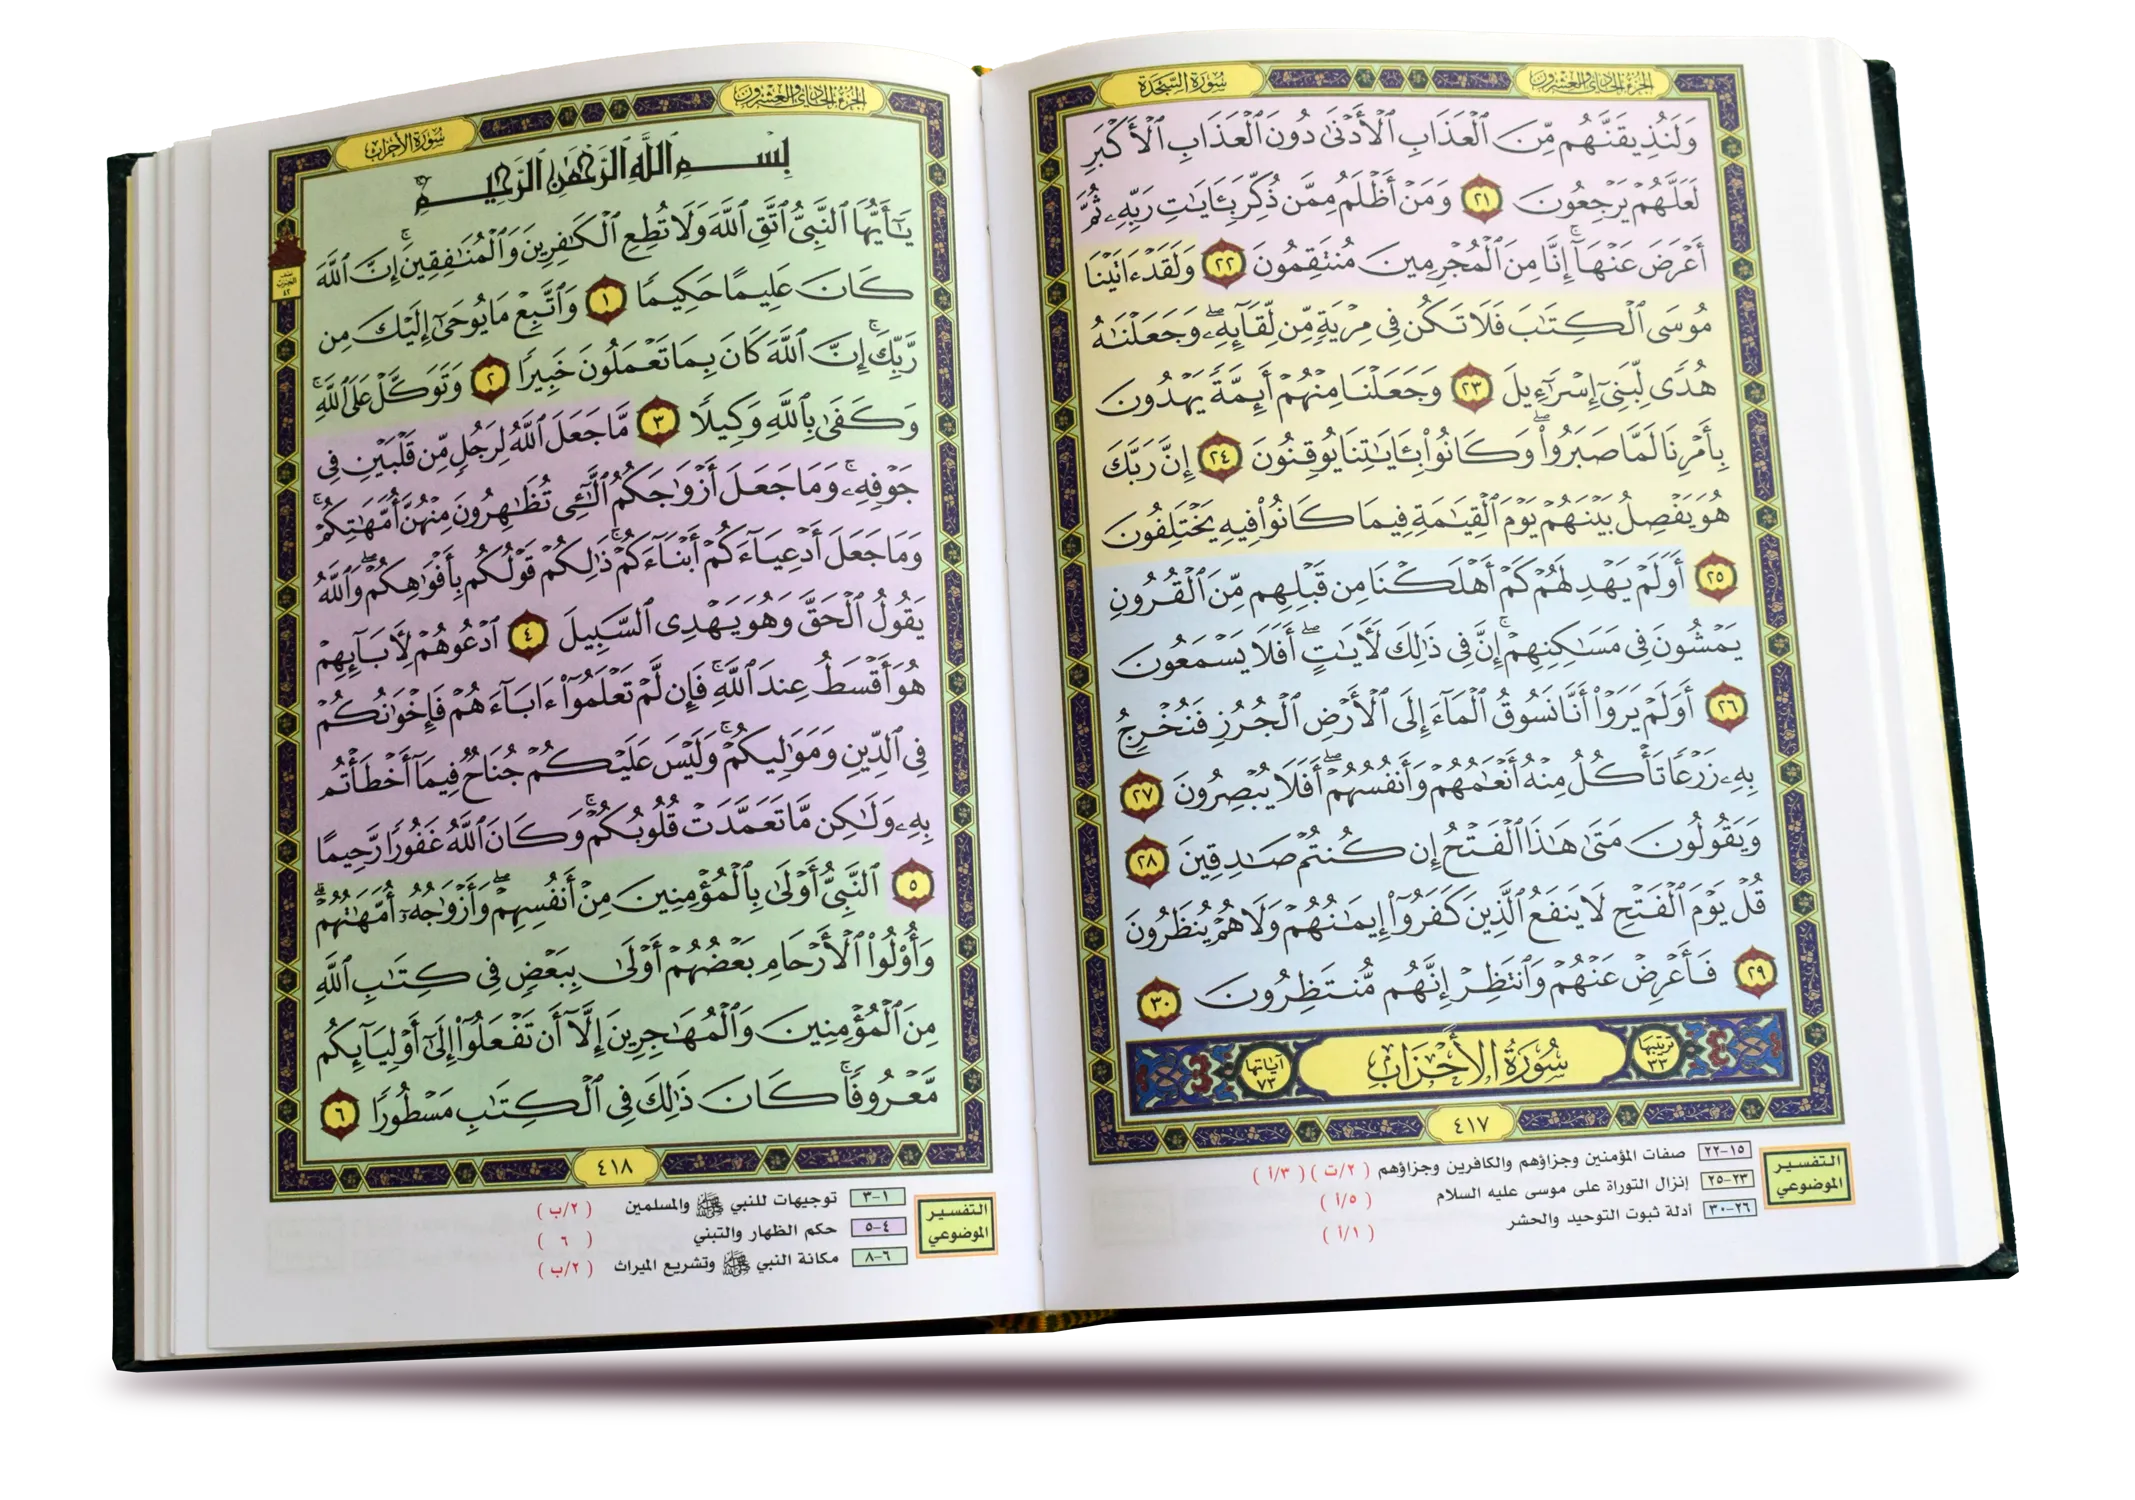 سورة السجدة
الجزء الحادي والعشرون
وَلَنُذِيقَنَّهُم مِّنَ ٱلْعَذَابِ ٱلْأَدْنَىٰ دُونَ ٱلْعَذَابِ ٱلْأَكْبَرِ
لَعَلَّهُمْ يَرْجِعُونَ ٢١ وَمَنْ أَظْلَمُ مِمَّن ذُكِّرَ بِـَٔايَـٰتِ رَبِّهِۦ ثُمَّ
أَعْرَضَ عَنْهَآ ۚ إِنَّا مِنَ ٱلْمُجْرِمِينَ مُنتَقِمُونَ ٢٢ وَلَقَدْ ءَاتَيْنَا
مُوسَى ٱلْكِتَـٰبَ فَلَا تَكُن فِى مِرْيَةٍ مِّن لِّقَآئِهِۦ ۖ وَجَعَلْنَـٰهُ
هُدًى لِّبَنِىٓ إِسْرَٰٓءِيلَ ٢٣ وَجَعَلْنَا مِنْهُمْ أَئِمَّةً يَهْدُونَ
بِأَمْرِنَا لَمَّا صَبَرُوا۟ ۖ وَكَانُوا۟ بِـَٔايَـٰتِنَا يُوقِنُونَ ٢٤ إِنَّ رَبَّكَ
هُوَ يَفْصِلُ بَيْنَهُمْ يَوْمَ ٱلْقِيَـٰمَةِ فِيمَا كَانُوا۟ فِيهِ يَخْتَلِفُونَ
٢٥ أَوَلَمْ يَهْدِ لَهُمْ كَمْ أَهْلَكْنَا مِن قَبْلِهِم مِّنَ ٱلْقُرُونِ
يَمْشُونَ فِى مَسَـٰكِنِهِمْ ۚ إِنَّ فِى ذَٰلِكَ لَـَٔايَـٰتٍ ۖ أَفَلَا يَسْمَعُونَ
٢٦ أَوَلَمْ يَرَوْا۟ أَنَّا نَسُوقُ ٱلْمَآءَ إِلَى ٱلْأَرْضِ ٱلْجُرُزِ فَنُخْرِجُ
بِهِۦ زَرْعًا تَأْكُلُ مِنْهُ أَنْعَـٰمُهُمْ وَأَنفُسُهُمْ ۖ أَفَلَا يُبْصِرُونَ ٢٧
وَيَقُولُونَ مَتَىٰ هَـٰذَا ٱلْفَتْحُ إِن كُنتُمْ صَـٰدِقِينَ ٢٨
قُلْ يَوْمَ ٱلْفَتْحِ لَا يَنفَعُ ٱلَّذِينَ كَفَرُوٓا۟ إِيمَـٰنُهُمْ وَلَا هُمْ يُنظَرُونَ
٢٩ فَأَعْرِضْ عَنْهُمْ وَٱنتَظِرْ إِنَّهُم مُّنتَظِرُونَ ٣٠
ترتيبها ٣٣ سُورَةُ الأَحْزَابِ آياتها ٧٣
٤١٧
التفسير الموضوعي
١٥-٢٢ صفات المؤمنين وجزاؤهم والكافرين وجزاؤهم (٢/ت) (٣/أ)
٢٣-٢٥ إنزال التوراة على موسى عليه السلام (٥/أ)
٢٦-٣٠ أدلة ثبوت التوحيد والحشر (١/أ)
الجزء الحادي والعشرون
سورة الأحزاب
بِسْمِ ٱللَّهِ ٱلرَّحْمَـٰنِ ٱلرَّحِيمِ
يَـٰٓأَيُّهَا ٱلنَّبِىُّ ٱتَّقِ ٱللَّهَ وَلَا تُطِعِ ٱلْكَـٰفِرِينَ وَٱلْمُنَـٰفِقِينَ ۗ إِنَّ ٱللَّهَ
كَانَ عَلِيمًا حَكِيمًا ١ وَٱتَّبِعْ مَا يُوحَىٰٓ إِلَيْكَ مِن
رَّبِّكَ ۚ إِنَّ ٱللَّهَ كَانَ بِمَا تَعْمَلُونَ خَبِيرًا ٢ وَتَوَكَّلْ عَلَى ٱللَّهِ ۚ
وَكَفَىٰ بِٱللَّهِ وَكِيلًا ٣ مَّا جَعَلَ ٱللَّهُ لِرَجُلٍ مِّن قَلْبَيْنِ فِى
جَوْفِهِۦ ۚ وَمَا جَعَلَ أَزْوَٰجَكُمُ ٱلَّـٰٓـِٔى تُظَـٰهِرُونَ مِنْهُنَّ أُمَّهَـٰتِكُمْ ۚ
وَمَا جَعَلَ أَدْعِيَآءَكُمْ أَبْنَآءَكُمْ ۚ ذَٰلِكُمْ قَوْلُكُم بِأَفْوَٰهِكُمْ ۖ وَٱللَّهُ
يَقُولُ ٱلْحَقَّ وَهُوَ يَهْدِى ٱلسَّبِيلَ ٤ ٱدْعُوهُمْ لِـَٔابَآئِهِمْ
هُوَ أَقْسَطُ عِندَ ٱللَّهِ ۚ فَإِن لَّمْ تَعْلَمُوٓا۟ ءَابَآءَهُمْ فَإِخْوَٰنُكُمْ
فِى ٱلدِّينِ وَمَوَٰلِيكُمْ ۚ وَلَيْسَ عَلَيْكُمْ جُنَاحٌ فِيمَآ أَخْطَأْتُم
بِهِۦ وَلَـٰكِن مَّا تَعَمَّدَتْ قُلُوبُكُمْ ۚ وَكَانَ ٱللَّهُ غَفُورًا رَّحِيمًا
٥ ٱلنَّبِىُّ أَوْلَىٰ بِٱلْمُؤْمِنِينَ مِنْ أَنفُسِهِمْ ۖ وَأَزْوَٰجُهُۥٓ أُمَّهَـٰتُهُمْ ۗ
وَأُو۟لُوا۟ ٱلْأَرْحَامِ بَعْضُهُمْ أَوْلَىٰ بِبَعْضٍ فِى كِتَـٰبِ ٱللَّهِ
مِنَ ٱلْمُؤْمِنِينَ وَٱلْمُهَـٰجِرِينَ إِلَّآ أَن تَفْعَلُوٓا۟ إِلَىٰٓ أَوْلِيَآئِكُم
مَّعْرُوفًا ۚ كَانَ ذَٰلِكَ فِى ٱلْكِتَـٰبِ مَسْطُورًا ٦
٤١٨
التفسير الموضوعي
١-٣ توجيهات للنبي ﷺ والمسلمين (٢/ب)
٤-٥ حكم الظهار والتبني (٦)
٦-٨ مكانة النبي ﷺ وتشريع الميراث (٢/ب)
نصف الحزب ٤٢